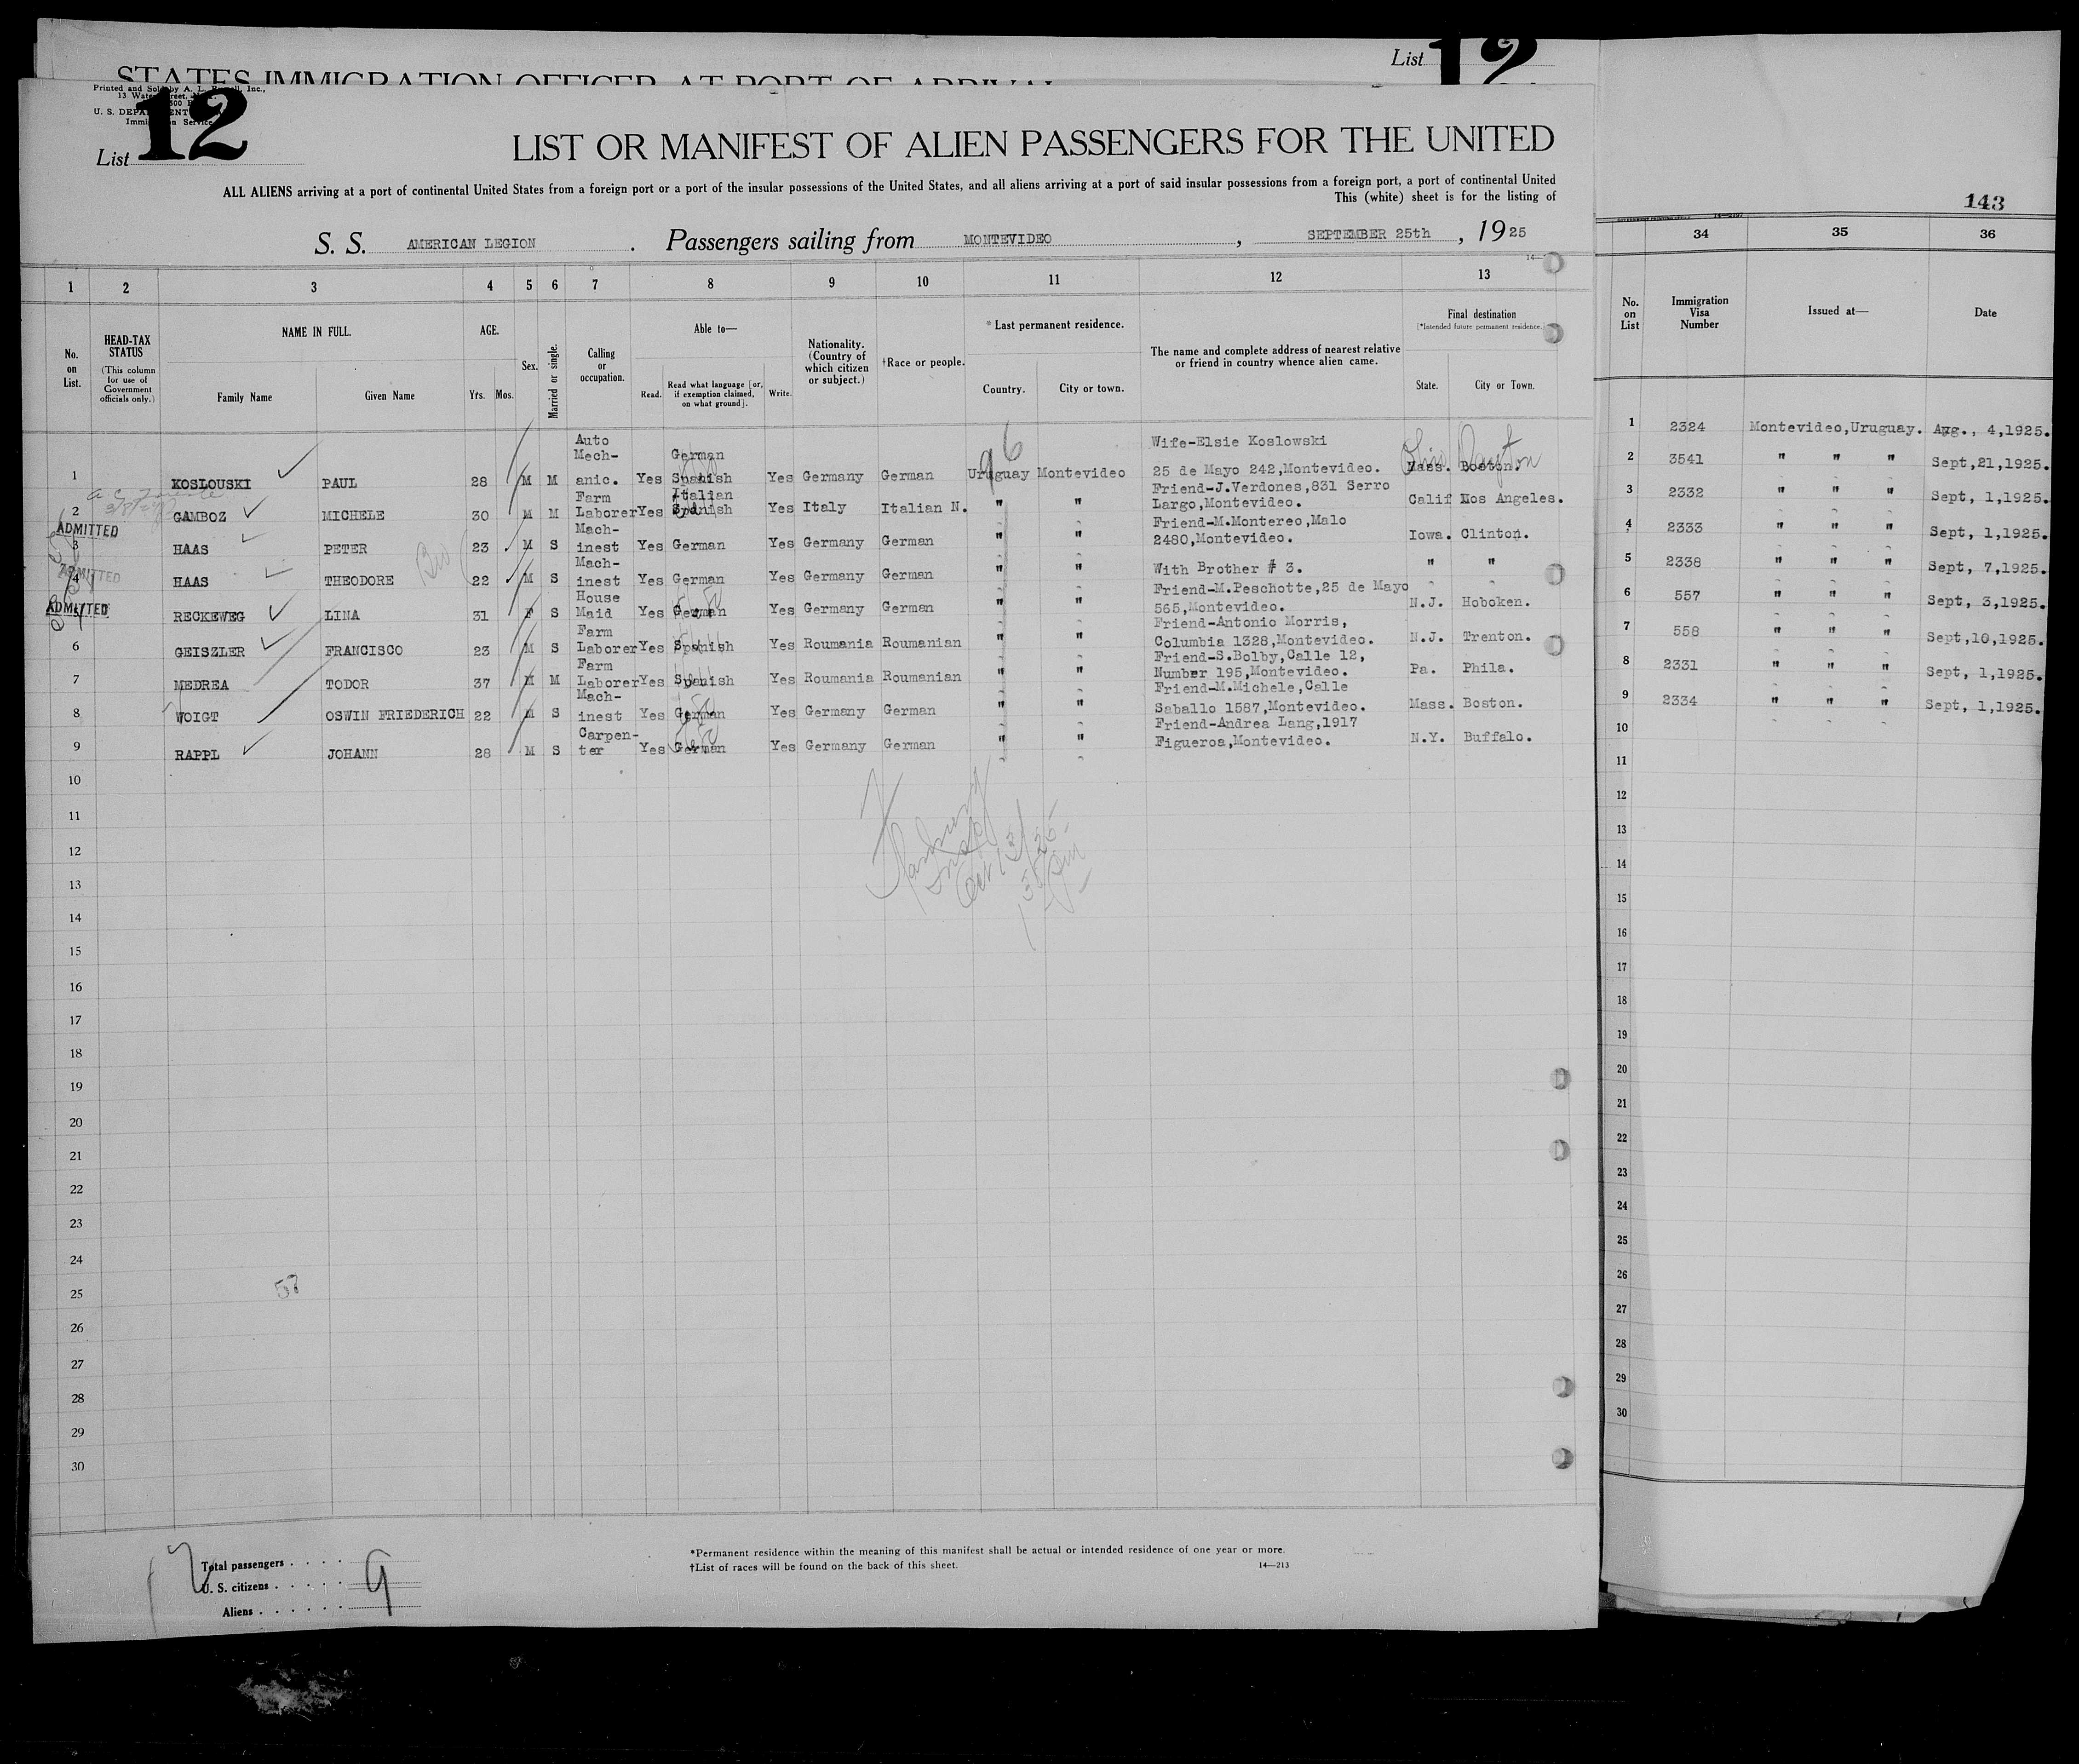 STATES IMMIGRATION OFFICER AT PORT OF ARRIVAL
List 12
Printed and Sold by A. L. Inc.,
13 Water Street,
U. S. DEPARTMENT
Immigration Service
List 12
LIST OR MANIFEST OF ALIEN PASSENGERS FOR THE UNITED
ALL ALIENS arriving at a port of continental United States from a foreign port or a port of the insular possessions of the United States, and all aliens arriving at a port of said insular possessions from a foreign port, a port of continental United
This (white) sheet is for the listing of
S. S. AMERICAN LEGION . Passengers sailing from MONTEVIDEO , SEPTEMBER 25th , 1925
1 2 3 4 5 6 7 8 9 10 11 12 13
No. on List.
HEAD-TAX STATUS
(This column for use of Government officials only.)
NAME IN FULL.
Family Name Given Name
AGE.
Yrs. Mos.
Sex.
Married or single.
Calling or occupation.
Able to—
Read. Read what language [or, if exemption claimed, on what ground]. Write.
Nationality. (Country of which citizen or subject.)
†Race or people.
* Last permanent residence.
Country. City or town.
The name and complete address of nearest relative or friend in country whence alien came.
Final destination
(*Intended future permanent residence.)
State. City or Town.
96
Auto Mech- German Wife-Elsie Koslowski Ohio Dayton
1 KOSLOUSKI PAUL 28 M M anic. Yes Spanish Yes Germany German Uruguay Montevideo 25 de Mayo 242,Montevideo. Mass. Boston.
Farm Italian Friend-J.Verdones,831 Serro
2 GAMBOZ MICHELE 30 M M Laborer Yes Spanish Yes Italy Italian N. " " Largo,Montevideo. Calif Los Angeles.
ADMITTED
Mach- Friend-M.Montereo,Malo
3 HAAS PETER 23 M S inest Yes German Yes Germany German " " 2480,Montevideo. Iowa. Clinton.
ADMITTED
Mach-
4 HAAS THEODORE 22 M S inest Yes German Yes Germany German " " With Brother # 3. " "
ADMITTED
House Friend-M.Peschotte,25 de Mayo
RECKEWEG LINA 31 F S Maid Yes German Yes Germany German " " 565,Montevideo. N.J. Hoboken.
Farm Friend-Antonio Morris,
6 GEISZLER FRANCISCO 23 M S Laborer Yes Spanish Yes Roumania Roumanian " " Columbia 1328,Montevideo. N.J. Trenton.
Farm Friend-S.Bolby,Calle 12,
7 MEDREA TODOR 37 M M Laborer Yes Spanish Yes Roumania Roumanian " " Number 195,Montevideo. Pa. Phila.
Mach- Friend-M.Michele,Calle
8 VOIGT OSWIN FRIEDERICH 22 M S inest Yes German Yes Germany German " " Saballo 1587,Montevideo. Mass. Boston.
Carpen- Friend-Andrea Lang,1917
9 RAPPL JOHANN 28 M S ter Yes German Yes Germany German " " Figueroa,Montevideo. N.Y. Buffalo.
10
11
12
13
14
15
16
17
18
19
20
21
22
23
24
25
26
27
28
29
30
Total passengers . . . .
U. S. citizens . . . . .
Aliens . . . . . .
9
*Permanent residence within the meaning of this manifest shall be actual or intended residence of one year or more.
†List of races will be found on the back of this sheet. 14—213
143
34 35 36
No. on List
Immigration Visa Number
Issued at—
Date
1 2324 Montevideo,Uruguay. Aug., 4,1925.
2 3541 " " " Sept,21,1925.
3 2332 " " " Sept, 1,1925.
4 2333 " " " Sept, 1,1925.
5 2338 " " " Sept, 7,1925.
6 557 " " " Sept, 3,1925.
7 558 " " " Sept,10,1925.
8 2331 " " " Sept, 1,1925.
9 2334 " " " Sept, 1,1925.
10
11
12
13
14
15
16
17
18
19
20
21
22
23
24
25
26
27
28
29
30